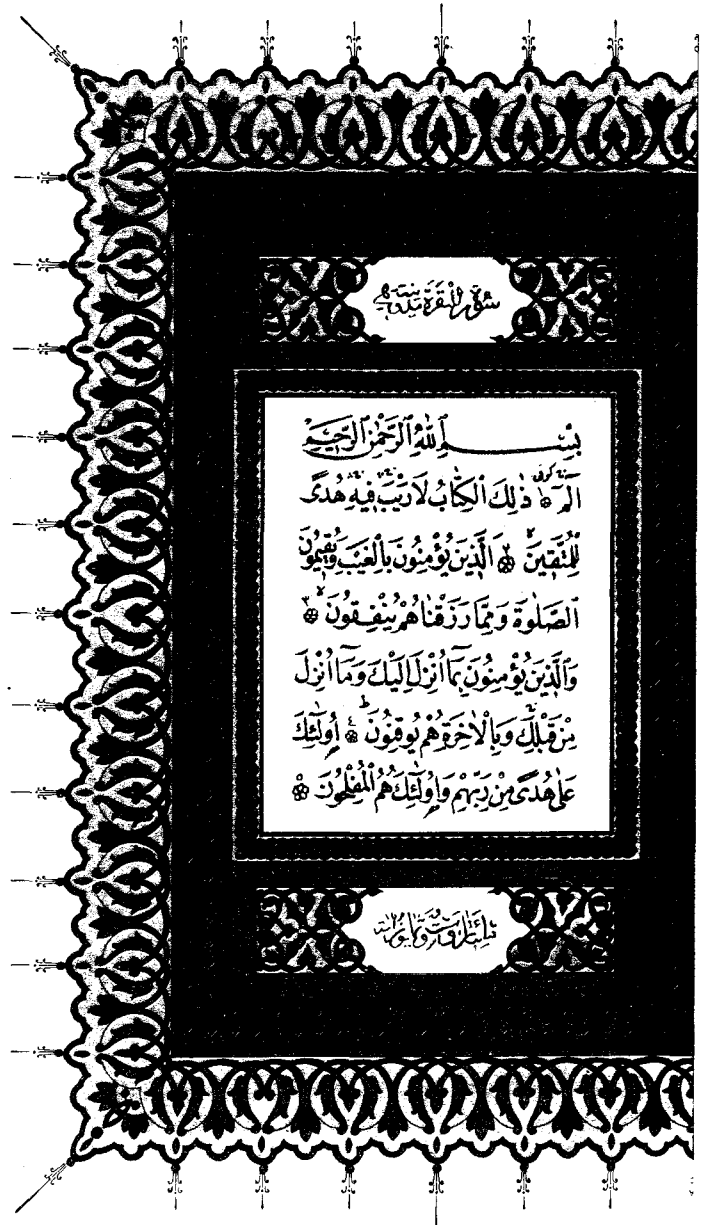 سُورَةُ الْبَقَرَةِ مَدَنِيَّةٌ وَهِيَ
بِسْمِ ٱللّٰهِ ٱلرَّحْمٰنِ ٱلرَّحِيمِ
الٓمٓ ۝ ذٰلِكَ الْكِتَابُ لَارَيْبَ فِيهِ هُدًى
لِلْمُتَّقِينَ ۝ اَلَّذِينَ يُؤْمِنُونَ بِالْغَيْبِ وَيُقِيمُونَ
الصَّلٰوةَ وَمِمَّا رَزَقْنَاهُمْ يُنْفِقُونَ ۝
وَالَّذِينَ يُؤْمِنُونَ بِمَٓا اُنْزِلَ اِلَيْكَ وَمَٓا اُنْزِلَ
مِنْ قَبْلِكَ وَبِالْاٰخِرَةِ هُمْ يُوقِنُونَ ۝ اُولٰٓئِكَ
عَلٰى هُدًى مِنْ رَبِّهِمْ وَاُولٰٓئِكَ هُمُ الْمُفْلِحُونَ ۝